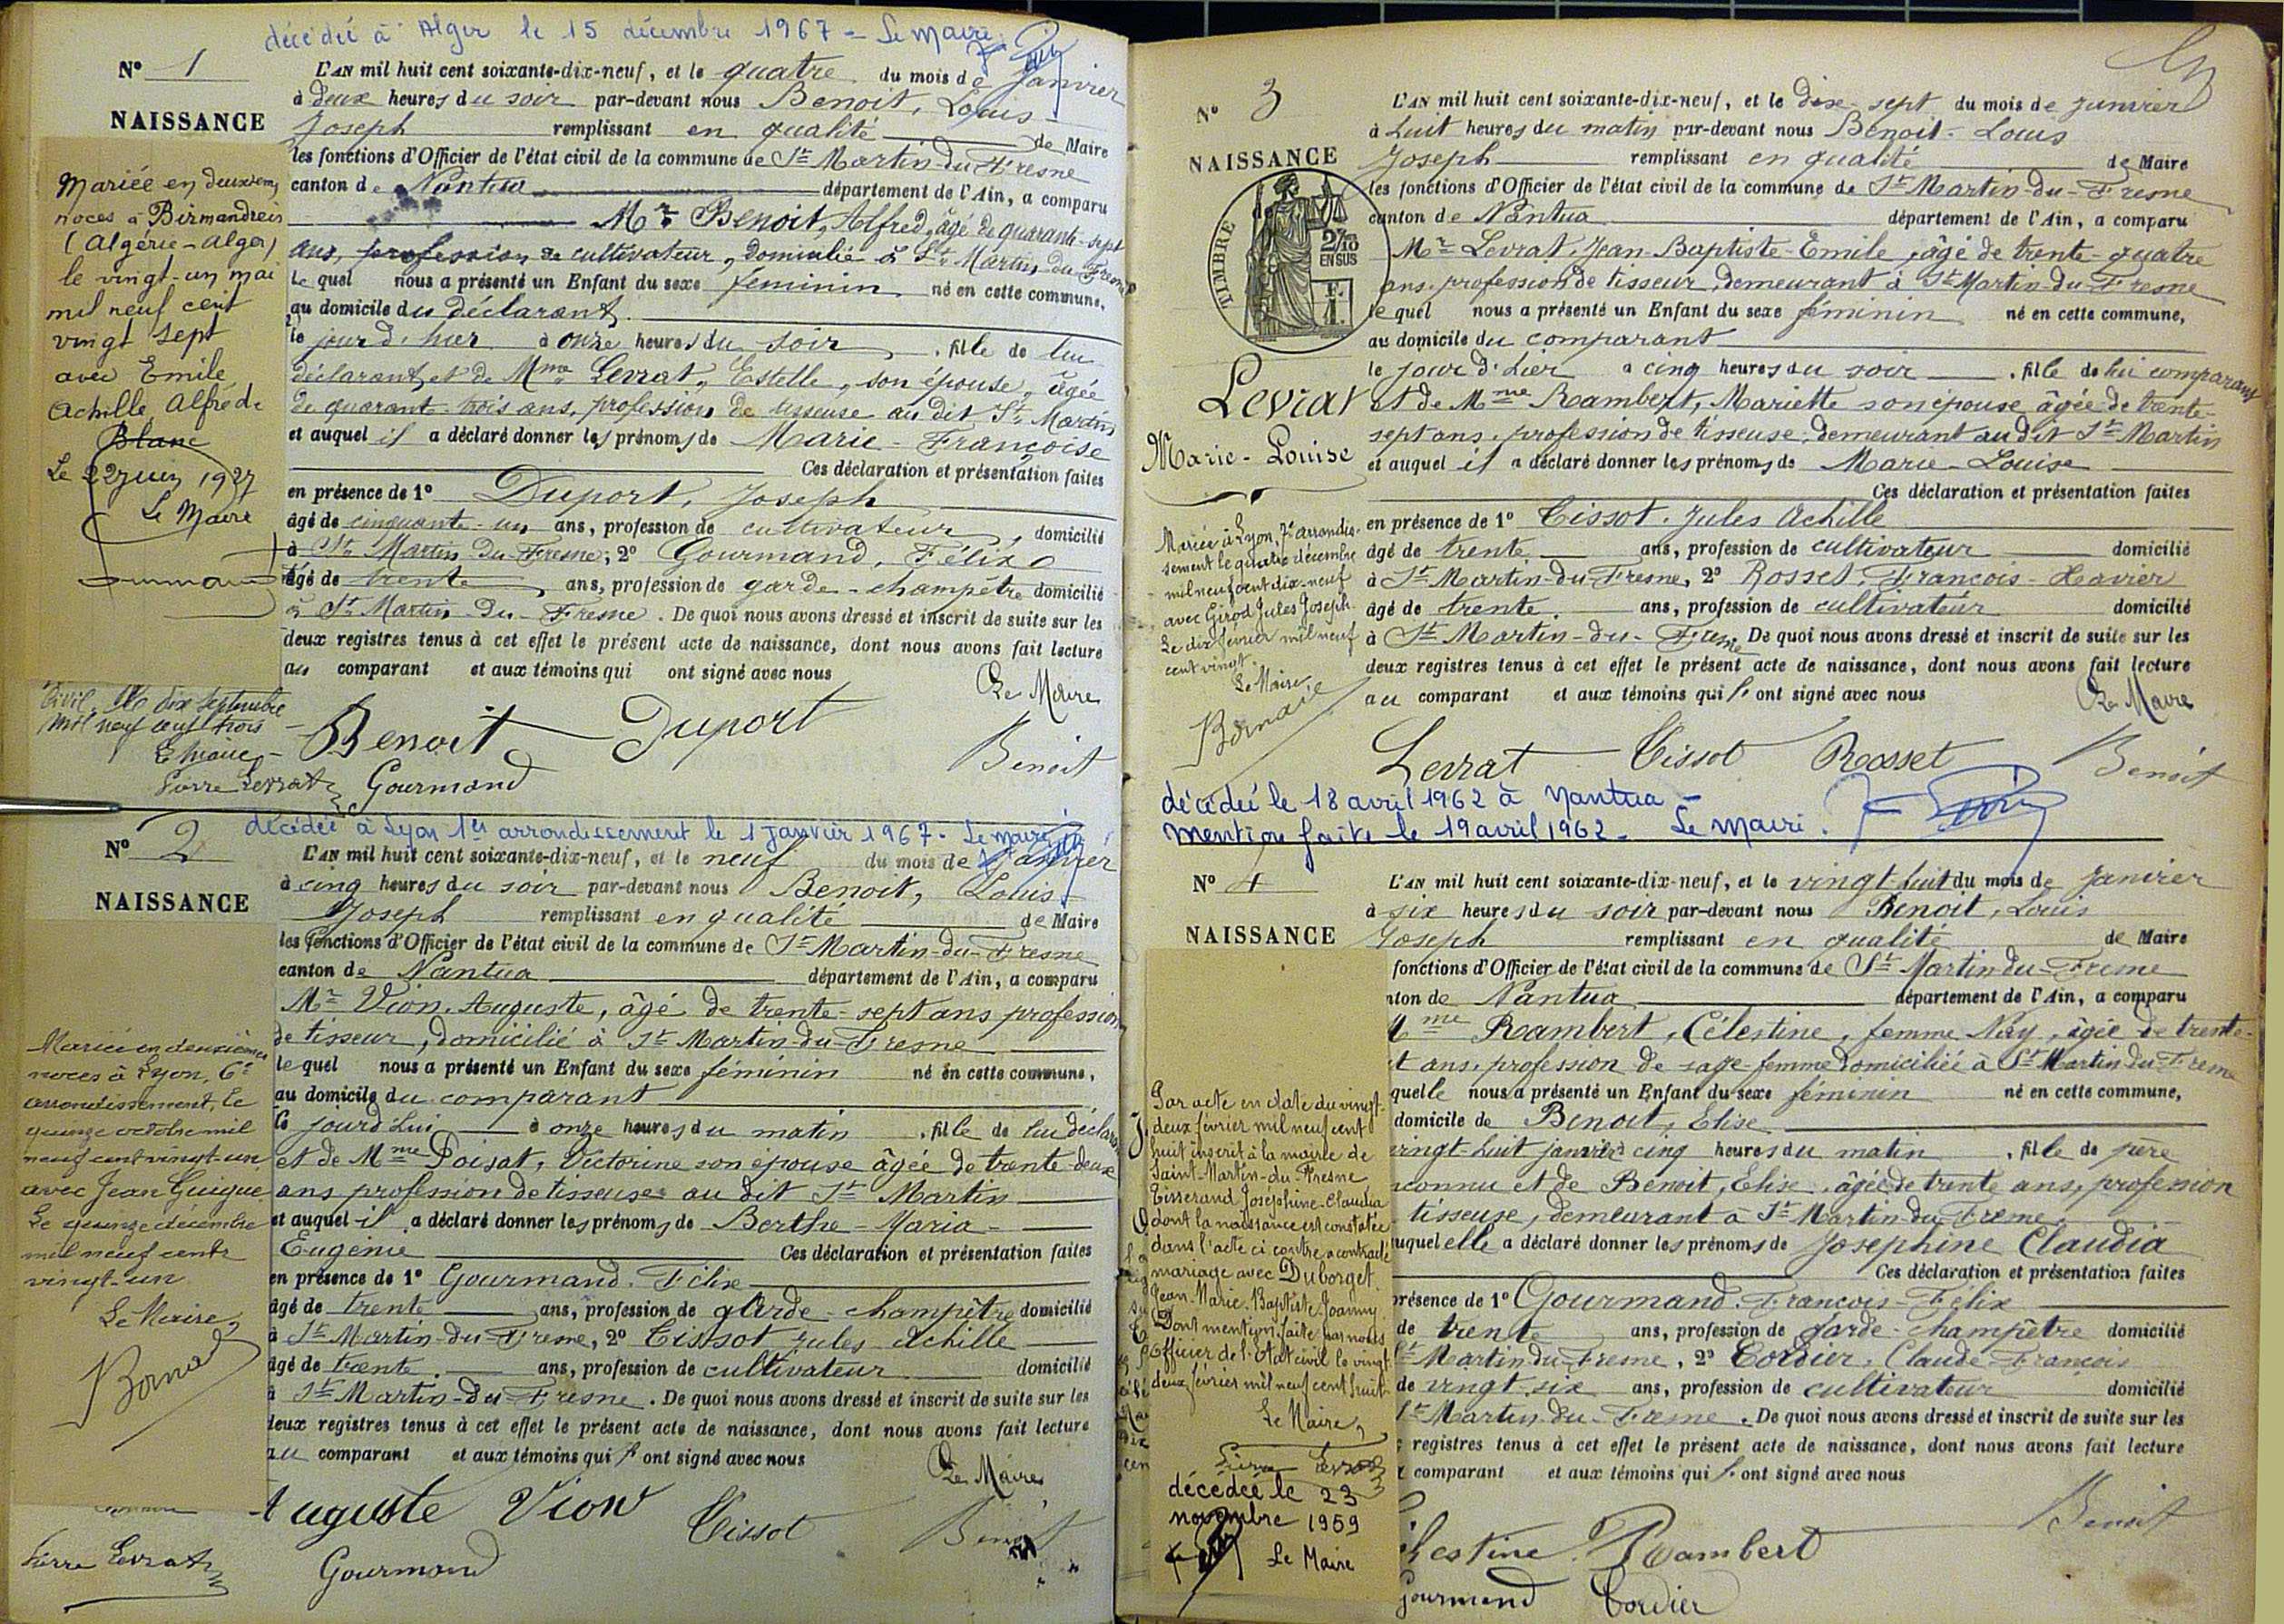 décédée à Alger le 15 décembre 1967 - Le Maire
N° 1
NAISSANCE
L'AN mil huit cent soixante-dix-neuf, et le quatre du mois de Janvier
à deux heures du soir par-devant nous Benoit, Louis
Joseph remplissant en qualité de Maire
les fonctions d'Officier de l'état civil de la commune de St Martin-du-Fresne
canton de Nantua département de l'Ain, a comparu
Mr Benoit, Alfred, âgé de quarante-sept
ans, profession de cultivateur, domicilié à St Martin du Fresne
lequel nous a présenté un Enfant du sexe féminin né en cette commune,
au domicile du déclarant
le jour d'hier à onze heures du soir, fille de lui
déclarant et de Mme Levrat, Estelle, son épouse, âgée
de quarante-trois ans, profession de tisseuse au dit St Martin
et auquel il a déclaré donner les prénoms de Marie-Françoise
Ces déclaration et présentation faites
en présence de 1° Duport, Joseph
âgé de cinquante-un ans, profession de cultivateur, domicilié
à St Martin du Fresne; 2° Gourmand, Félix
âgé de trente ans, profession de garde-champêtre domicilié
à St Martin-du-Fresne. De quoi nous avons dressé et inscrit de suite sur les
deux registres tenus à cet effet le présent acte de naissance, dont nous avons fait lecture
au comparant et aux témoins qui ont signé avec nous
Le Maire
Benoit Duport
Benoit
Gourmand
Mariée en deuxièmes
noces à Birmandreis
(Algérie-Alger)
le vingt-un mai
mil neuf cent
vingt sept
avec Emile
Achille, Alfred
Blanc
Le 22 juin 1927
Le Maire
civil, le dix Septembre
mil neuf cent trois
Le Maire,
Pierre Levrat
décédée à Lyon 1er arrondissement le 1 janvier 1967. Le Maire
N° 2
NAISSANCE
L'AN mil huit cent soixante-dix-neuf, et le neuf du mois de Janvier
à cinq heures du soir par-devant nous Benoit, Louis
Joseph remplissant en qualité de Maire
les fonctions d'Officier de l'état civil de la commune de St Martin-du-Fresne
canton de Nantua département de l'Ain, a comparu
Mr Vion, Auguste, âgé de trente-sept ans profession
de tisseur, domicilié à St Martin-du-Fresne
lequel nous a présenté un Enfant du sexe féminin né en cette commune,
au domicile du comparant
le jourd'hui à onze heures du matin, fille de lui déclarant
et de Mme Poisat, Victorine son épouse âgée de trente-deux
ans profession de tisseuse au dit St Martin
et auquel il a déclaré donner les prénoms de Berthe-Maria-
Eugénie Ces déclaration et présentation faites
en présence de 1° Gourmand, Félix
âgé de trente ans, profession de garde-champêtre domicilié
à St Martin-du-Fresne, 2° Tissot Jules Achille
âgé de trente ans, profession de cultivateur domicilié
à St Martin-du-Fresne. De quoi nous avons dressé et inscrit de suite sur les
deux registres tenus à cet effet le présent acte de naissance, dont nous avons fait lecture
au comparant et aux témoins qui l'ont signé avec nous
Le Maire
Auguste Vion Tissot Benoit
Gourmand
Mariée en deuxièmes
noces à Lyon, 6e
arrondissement, le
quinze octobre mil
neuf cent vingt-un
avec Jean Guigue
Le quinze décembre
mil neuf cent
vingt-un
Le Maire,
Pierre Levrat
N° 3
NAISSANCE
TIMBRE
2/10
EN SUS
L'AN mil huit cent soixante-dix-neuf, et le dix-sept du mois de Janvier
à huit heures du matin par-devant nous Benoit-Louis
Joseph remplissant en qualité de Maire
les fonctions d'Officier de l'état civil de la commune de St Martin-du-Fresne
canton de Nantua département de l'Ain, a comparu
Mr Levrat, Jean-Baptiste-Emile, âgé de trente-quatre
ans, profession de tisseur, demeurant à St Martin-du-Fresne
lequel nous a présenté un Enfant du sexe féminin né en cette commune,
au domicile du comparant
le jour d'hier à cinq heures du soir, fille de lui comparant
et de Mme Rambert, Mariette son épouse âgée de trente-
sept ans, profession de tisseuse, demeurant au dit St Martin
et auquel il a déclaré donner les prénoms de Marie-Louise
Ces déclaration et présentation faites
en présence de 1° Tissot, Jules Achille
âgé de trente ans, profession de cultivateur domicilié
à St Martin-du-Fresne, 2° Rosset, François-Xavier
âgé de trente ans, profession de cultivateur domicilié
à St Martin-du-Fresne De quoi nous avons dressé et inscrit de suite sur les
deux registres tenus à cet effet le présent acte de naissance, dont nous avons fait lecture
au comparant et aux témoins qui l'ont signé avec nous
Le Maire
Levrat Tissot Rosset Benoit
Levrat
Marie-Louise
Mariée à Lyon, 7e arrondis-
sement le quatre décembre
mil neuf cent dix-neuf
avec Girod Jules Joseph.
Le dix février mil neuf
cent vingt.
Le Maire
décédée le 18 avril 1962 à Nantua -
mention faite le 19 avril 1962 - Le Maire.
N° 4
NAISSANCE
L'AN mil huit cent soixante-dix-neuf, et le vingt-huit du mois de Janvier
à six heures du soir par-devant nous Benoit, Louis
Joseph remplissant en qualité de Maire
fonctions d'Officier de l'état civil de la commune de St Martin-du-Fresne
nton de Nantua département de l'Ain, a comparu
Mme Rambert, Célestine, femme Nay, âgée de trente-
t ans, profession de sage-femme domiciliée à St Martin du Fresne
quelle nous a présenté un Enfant du sexe féminin né en cette commune,
domicile de Benoit, Elise
vingt-huit janvier à cinq heures du matin, fille de père
nconnu et de Benoit, Elise, âgée de trente ans, profession
tisseuse, demeurant à St Martin-du-Fresne,
uquel elle a déclaré donner les prénoms de Josephine Claudia
Ces déclaration et présentation faites
présence de 1° Gourmand, François-Félix
de trente ans, profession de garde-champêtre domicilié
St Martin-du-Fresne, 2° Cordier, Claude-François
de vingt-six ans, profession de cultivateur domicilié
St Martin-du-Fresne. De quoi nous avons dressé et inscrit de suite sur les
registres tenus à cet effet le présent acte de naissance, dont nous avons fait lecture
comparant et aux témoins qui l'ont signé avec nous
Benoit
lestine Rambert
Gourmand Cordier
Par acte en date du vingt-
deux février mil neuf cent
huit inscrit à la mairie de
Saint-Martin-du-Fresne
Tisserand Joséphine-Claudia
dont la naissance est constatée
dans l'acte ci contre a contracté
mariage avec Duborget
Jean-Marie-Baptiste-Joanny
Dont mention faite par nous
Officier de l'état civil le vingt
deux février mil neuf cent huit
Le Maire,
Pierre Levrat
décédée le 23
novembre 1959
Le Maire